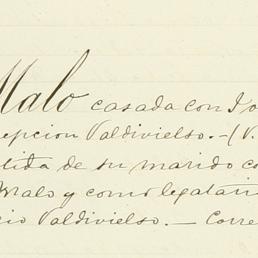 Malo casada con Jo
epcion Valdivielso. - (V.
tida de su marido co
Malo y como legatari
cio Valdivielso. — Corre